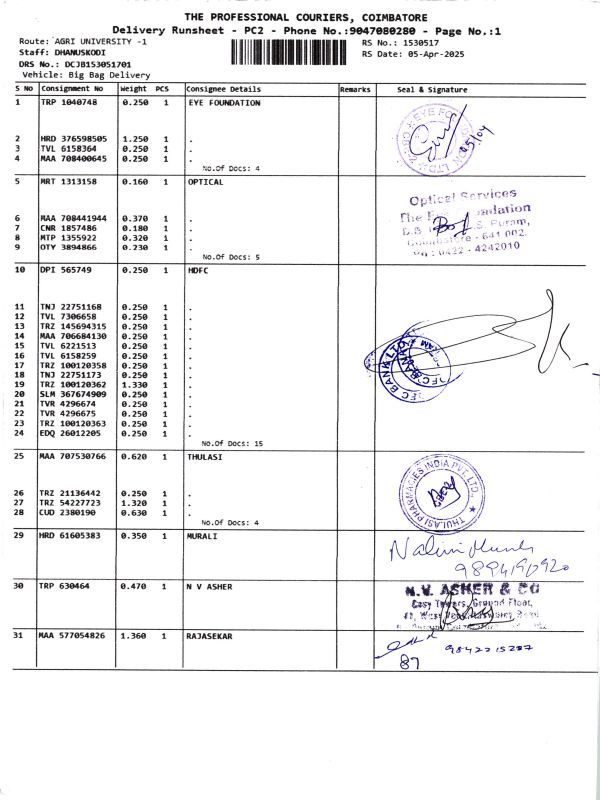 THE PROFESSIONAL COURIERS, COIMBATORE
Delivery Runsheet - PC2 - Phone No.:9047080280 - Page No.:1
Route: AGRI UNIVERSITY -1
RS No.: 1530517
Staff: DHANUSKODI
RS Date: 05-Apr-2025
DRS No.: DCJB153051701
Vehicle: Big Bag Delivery
S NO Consignment No Weight PCS Consignee Details Remarks Seal & Signature
1 TRP 1040748 0.250 1 EYE FOUNDATION
05/04
2 HRD 376598505 1.250 1 .
3 TVL 6158364 0.250 1 .
4 MAA 708400645 0.250 1 .
No.Of Docs: 4
5 MRT 1313158 0.160 1 OPTICAL
Optical Services
The Eye Foundation
6 MAA 708441944 0.370 1 .
7 CNR 1857486 0.180 1 .
8 MTP 1355922 0.320 1 .
9 OTY 3894866 0.230 1 .
S. Puram,
Coimbatore - 641 002.
Ph : 0422 - 4242010
No.Of Docs: 5
10 DPI 565749 0.250 1 HDFC
11 TNJ 22751168 0.250 1 .
12 TVL 7306658 0.250 1 .
13 TRZ 145694315 0.250 1 .
14 MAA 706684130 0.250 1 .
15 TVL 6221513 0.250 1 .
16 TVL 6158259 0.250 1 .
17 TRZ 100120358 0.250 1 .
18 TNJ 22751173 0.250 1 .
19 TRZ 100120362 1.330 1 .
20 SLM 367674909 0.250 1 .
21 TVR 4296674 0.250 1 .
22 TVR 4296675 0.250 1 .
23 TRZ 100120363 0.250 1 .
24 EDQ 26012205 0.250 1 .
No.Of Docs: 15
25 MAA 707530766 0.620 1 THULASI
THULASI PHARMACIES INDIA PVT. LTD.
26 TRZ 21136442 0.250 1 .
27 TRZ 54227723 1.320 1 .
28 CUD 2380190 0.630 1 .
No.Of Docs: 4
29 HRD 61605383 0.350 1 MURALI
30 TRP 630464 0.470 1 N V ASHER
N.V. ASHER & CO
Easy Towers, Ground Floor,
31 MAA 577054826 1.360 1 RAJASEKAR
9842215287
87